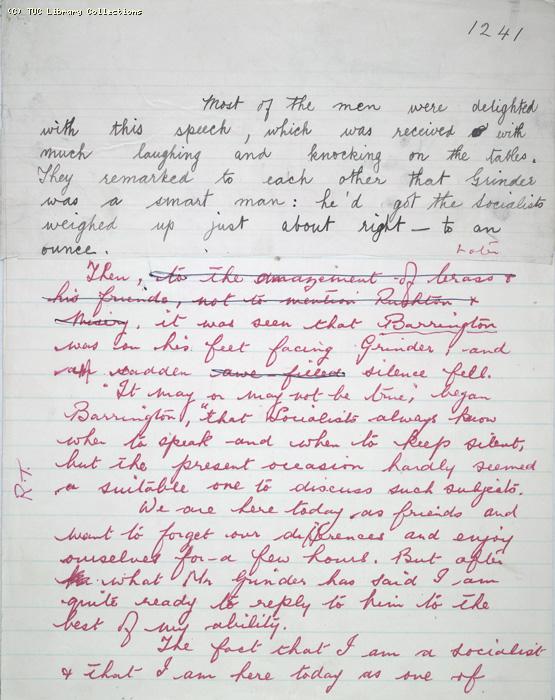 (C) TUC Library Collections
1241
Most of the men were delighted
with this speech, which was received with
much laughing and knocking on the tables.
They remarked to each other that Grinder
was a smart man: he'd got the Socialists
weighed up just about right — to an
ounce.
Later
Then, to the amazement of Crass &
his friends, not to mention Rushton &
Misery, it was seen that Barrington
was on his feet facing Grinder, and
a sudden awe-filled silence fell.
"It may or may not be true", began
Barrington, "that Socialists always know
when to speak and when to keep silent,
but the present occasion hardly seemed
a suitable one to discuss such subjects.
R.T.
We are here today as friends and
want to forget our differences and enjoy
ourselves for a few hours. But after
what Mr Grinder has said I am
quite ready to reply to him to the
best of my ability.
The fact that I am a socialist
& that I am here today as one of